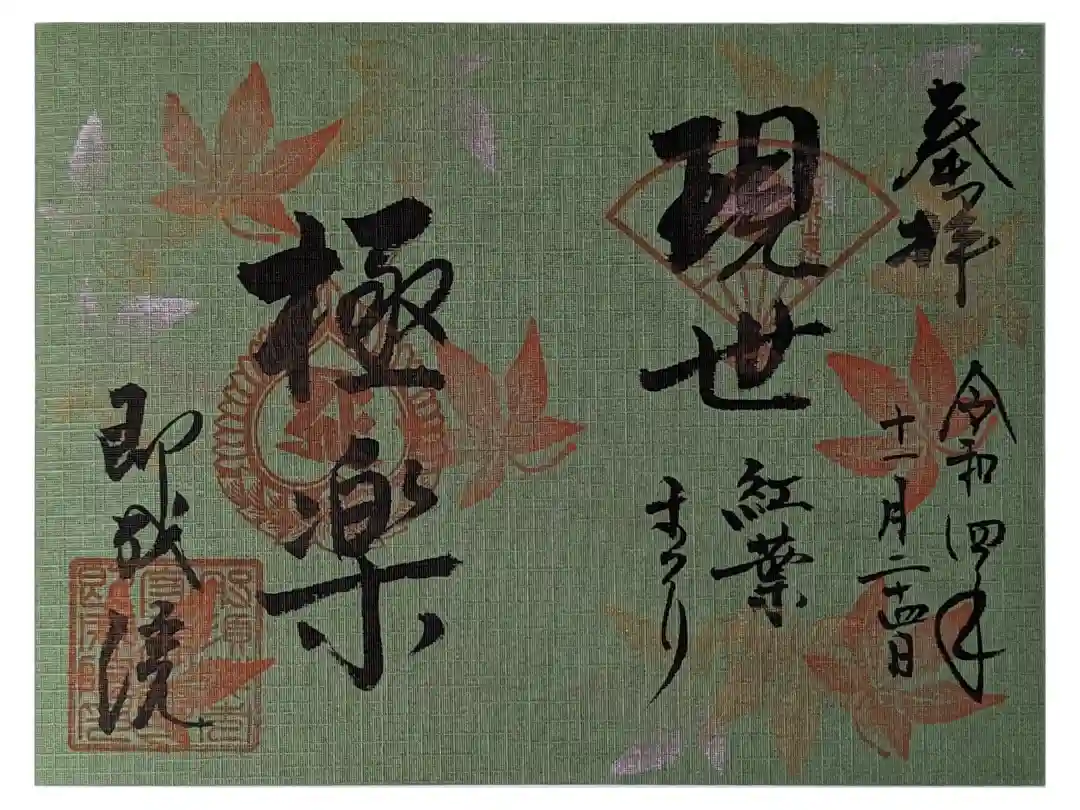 奉拝
令和四年
十一月二十四日
現世
紅葉
まつり
極楽
即成院